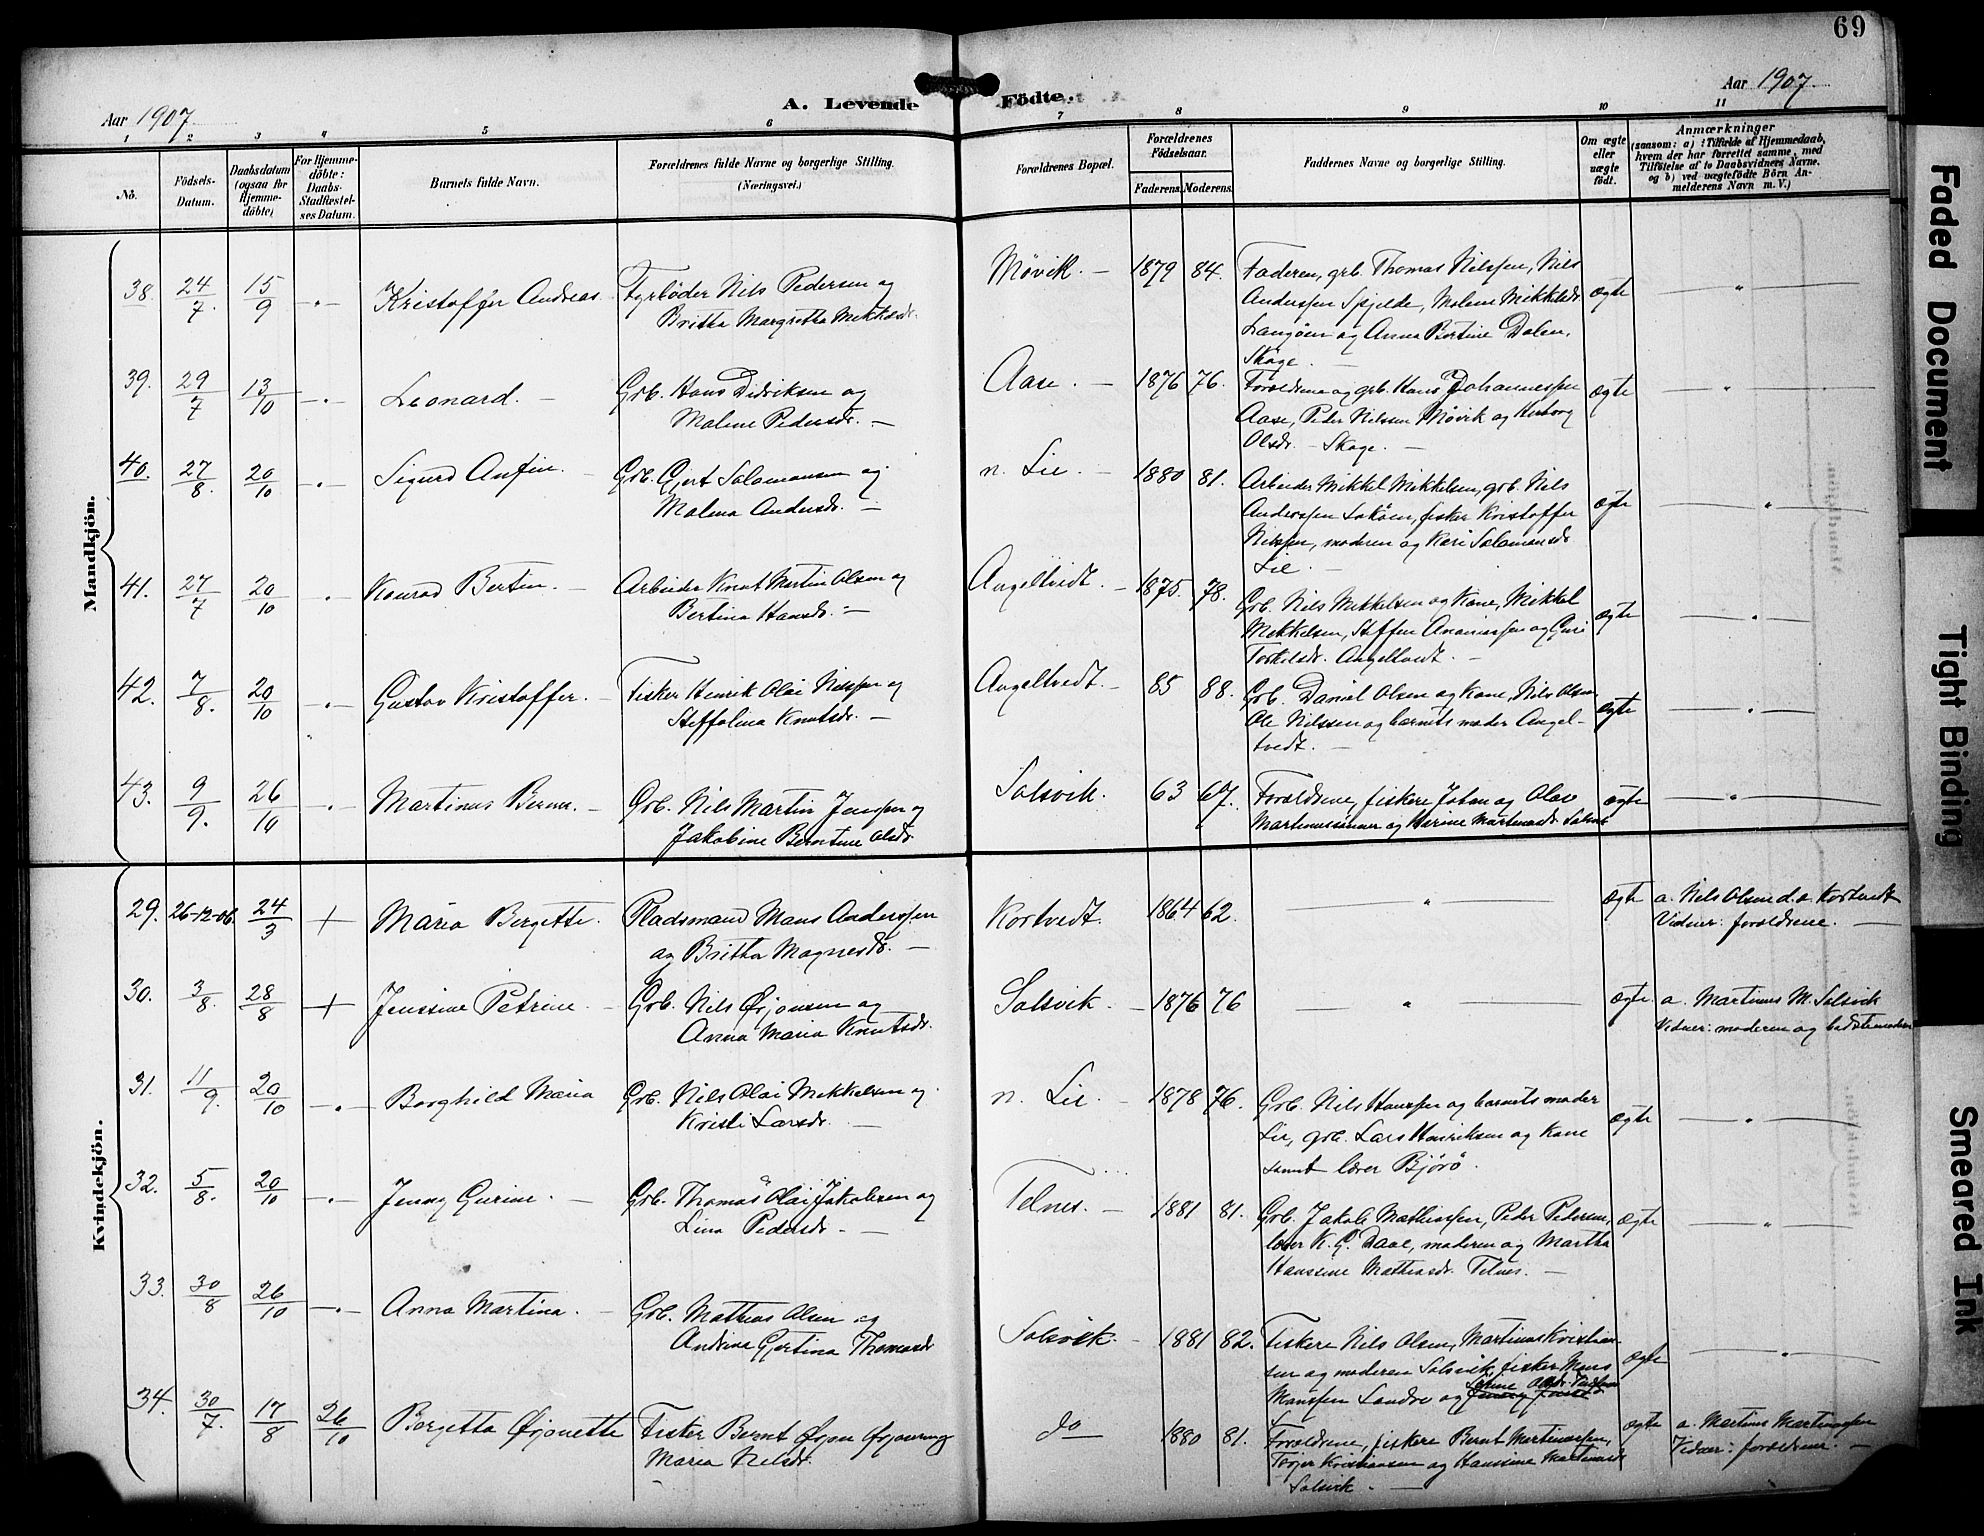 69
Aar 1907
A. Levende
Födte.
Aar 1907
1 2 3 4 5 6 7 8 9 10 11
No.
Födsels-
Datum.
Daabsdatum
(ogsaa for
Hjemme-
döbte)
For Hjemme-
döbte:
Daabs-
Stadfæstel-
ses Datum.
Barnets fulde Navn.
Forældrenes fulde Navne og borgerlige Stilling.
(Næringsvei.)
Forældrenes Bopæl.
Forældrenes
Födselsaar.
Faderens. Moderens.
Faddernes Navne og borgerlige Stilling.
Om ægte
eller
uægte
født.
Anmærkninger
(saasom: a) i Tilfælde af Hjemmedaab,
hvem der har forrettet samme, med
Tilföielse af to Daabsvidners Navne.
og b) ved uægtefödte Börn An-
melderens Navn m. V.)
Mandkjön.
38. 24/7 15/9 -"- Kristoffer Andreas. Fyrbøder Nils Pedersen og
Britha Margretha Mikkelsdr.
Møvik. — 1879 84. Faderen, grb. Thomas Nilssen, Nils
Anderssen Spjelde, Malene Mikkelsdr
Langøen og Anna Bertine Dalen,
Skage. ægte — " —
39. 29/7 13/10 -"- Leonard. — Grb. Hans Didriksen og
Malene Pedersdr. —
Aase. — 1876 76. Forældrene og grb. Hans Johannessen
Aase, Peder Nilssen Møvik og Herborg
Olsdr. — Skage. — ægte — " —
40. 27/8. 20/10 -"- Sigurd Anfin. — Grb. Gjert Salamonsen og
Malena Andersdr. —
n. Lie. — 1880 81. Arbeider Mikkel Mikkelsen, grb. Nils
Anderssen , fisker Kristoffer
Nilssen, moderen og Kari Salamonsdr
Lie. — ægte — " —
41. 27/7 20/10 -"- Konrad Bertin. — Arbeider Knut Martin Olsen og
Bertina Hansdr. —
Angeltvedt. — 1875. 78. Grb. Nils Mikkelsen og Kone, Mikkel
Mikkelsen, Steffen Ananiassen og Guri
Torkelsdr. Angeltvedt. — ægte — " —
42. 7/8. 20/10 -"- Gustav Kristoffer. — Fisker Henrik Olai Nilssen og
Steffalina Knutsdr. —
Angeltvedt. — 85 88. Grb. Daniel Olsen og Kone, Nils Olsen
Ole Nilssen og barnets moder Angel-
tvedt. — ægte — " —
43. 9/9. 26/10 -"- Martinus Bernt. — Grb. Nils Martin Jenssen og
Jakobine Berntine Olsdr
Solsvik. 63 67. Forældrene, fiskere Johan og Olav
Martinussønner og Martinusdr Solsvik ægte — " —
Kvindekjön.
29. 26-12-06 24/3 + Maria Bergitte. Pladsmand Mons Anderssen
og Britha Magnesdr. —
Kortvedt. 1864 62. — " — ægte a. Nils Olsen d.a. Kortvedt
Vidner: forældrene. —
30. 3/8. 28/8 + Jenssine Petrine — Grb. Nils Ørjonsen og
Anna Maria Knutsdr.
Solsvik. — 1876 76 — " — ægte. a. Martinus M. Solsvik
Vidner: moderen og bedstemoder
31. 11/9. 20/10 -"- Borghild Maria Grb. Nils Olai Mikkelsen og
Kristi Larsdr. —
n. Lie. — 1878 76. Grb. Nils Hanssen og barnets moder
Lie, grb. Lars Henriksen og Kone
samt lærer Bjørø. ægte — " —
32. 5/8. 20/10 -"- Jenny Gurine. — Grb. Thomas Olai Jakobsen og
Lina Pedersdr —
Telnes. — 1881 81. Grb. Jakob Mathiassen, Peder Pedersen,
lærer K. G. Daae, moderen og Martha
Hanssine Mathiasdr. Telnes. — ægte — " —
33. 30/8 26/10 -"- Anna Martina. — Grb. Mathias Olsen og
Andrine Gjertina Thomasdr
Solsvik. — 1881 82. Fiskere Nils Olsen, Martinus Kristian-
sen og moderen Solsvik, fisker Mons
Monssen Landro og Olsdr. ægte — " —
34. 30/7. 17/8 26/10 Bergitta Ørjonette Fisker Bernt Ørjan Ørjonsen og
Maria Nilsdr.
do 1880 81. Forældrene, fiskere Bernt Martinussen,
Torger Kristiansen og Hanssine Martinusdr
Solsvik. — ægte a. Martinus Martinussen
Vidner: forældrene. —
Faded Document
Tight Binding
Smeared Ink